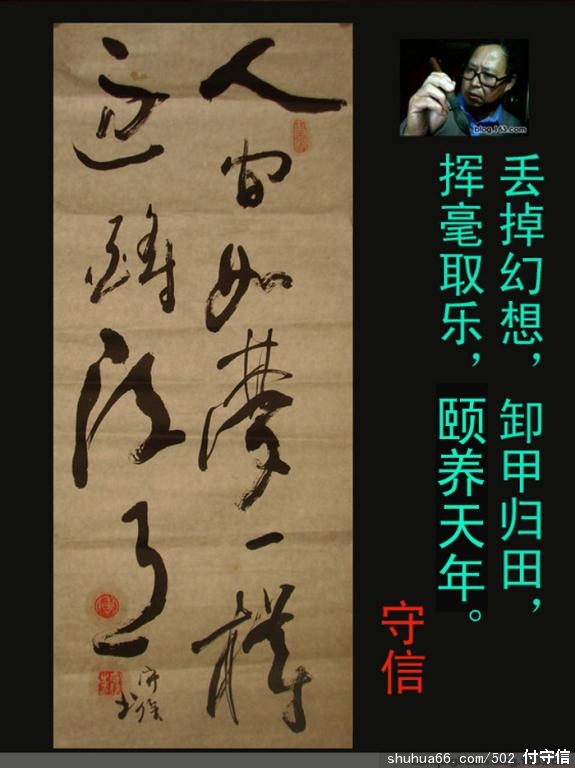 人间如夢一樽
还酹江月
守信书
blog.163.com
丢掉幻想，卸甲归田，
挥毫取乐，颐养天年。
守信
shuhua66.com/502 付守信